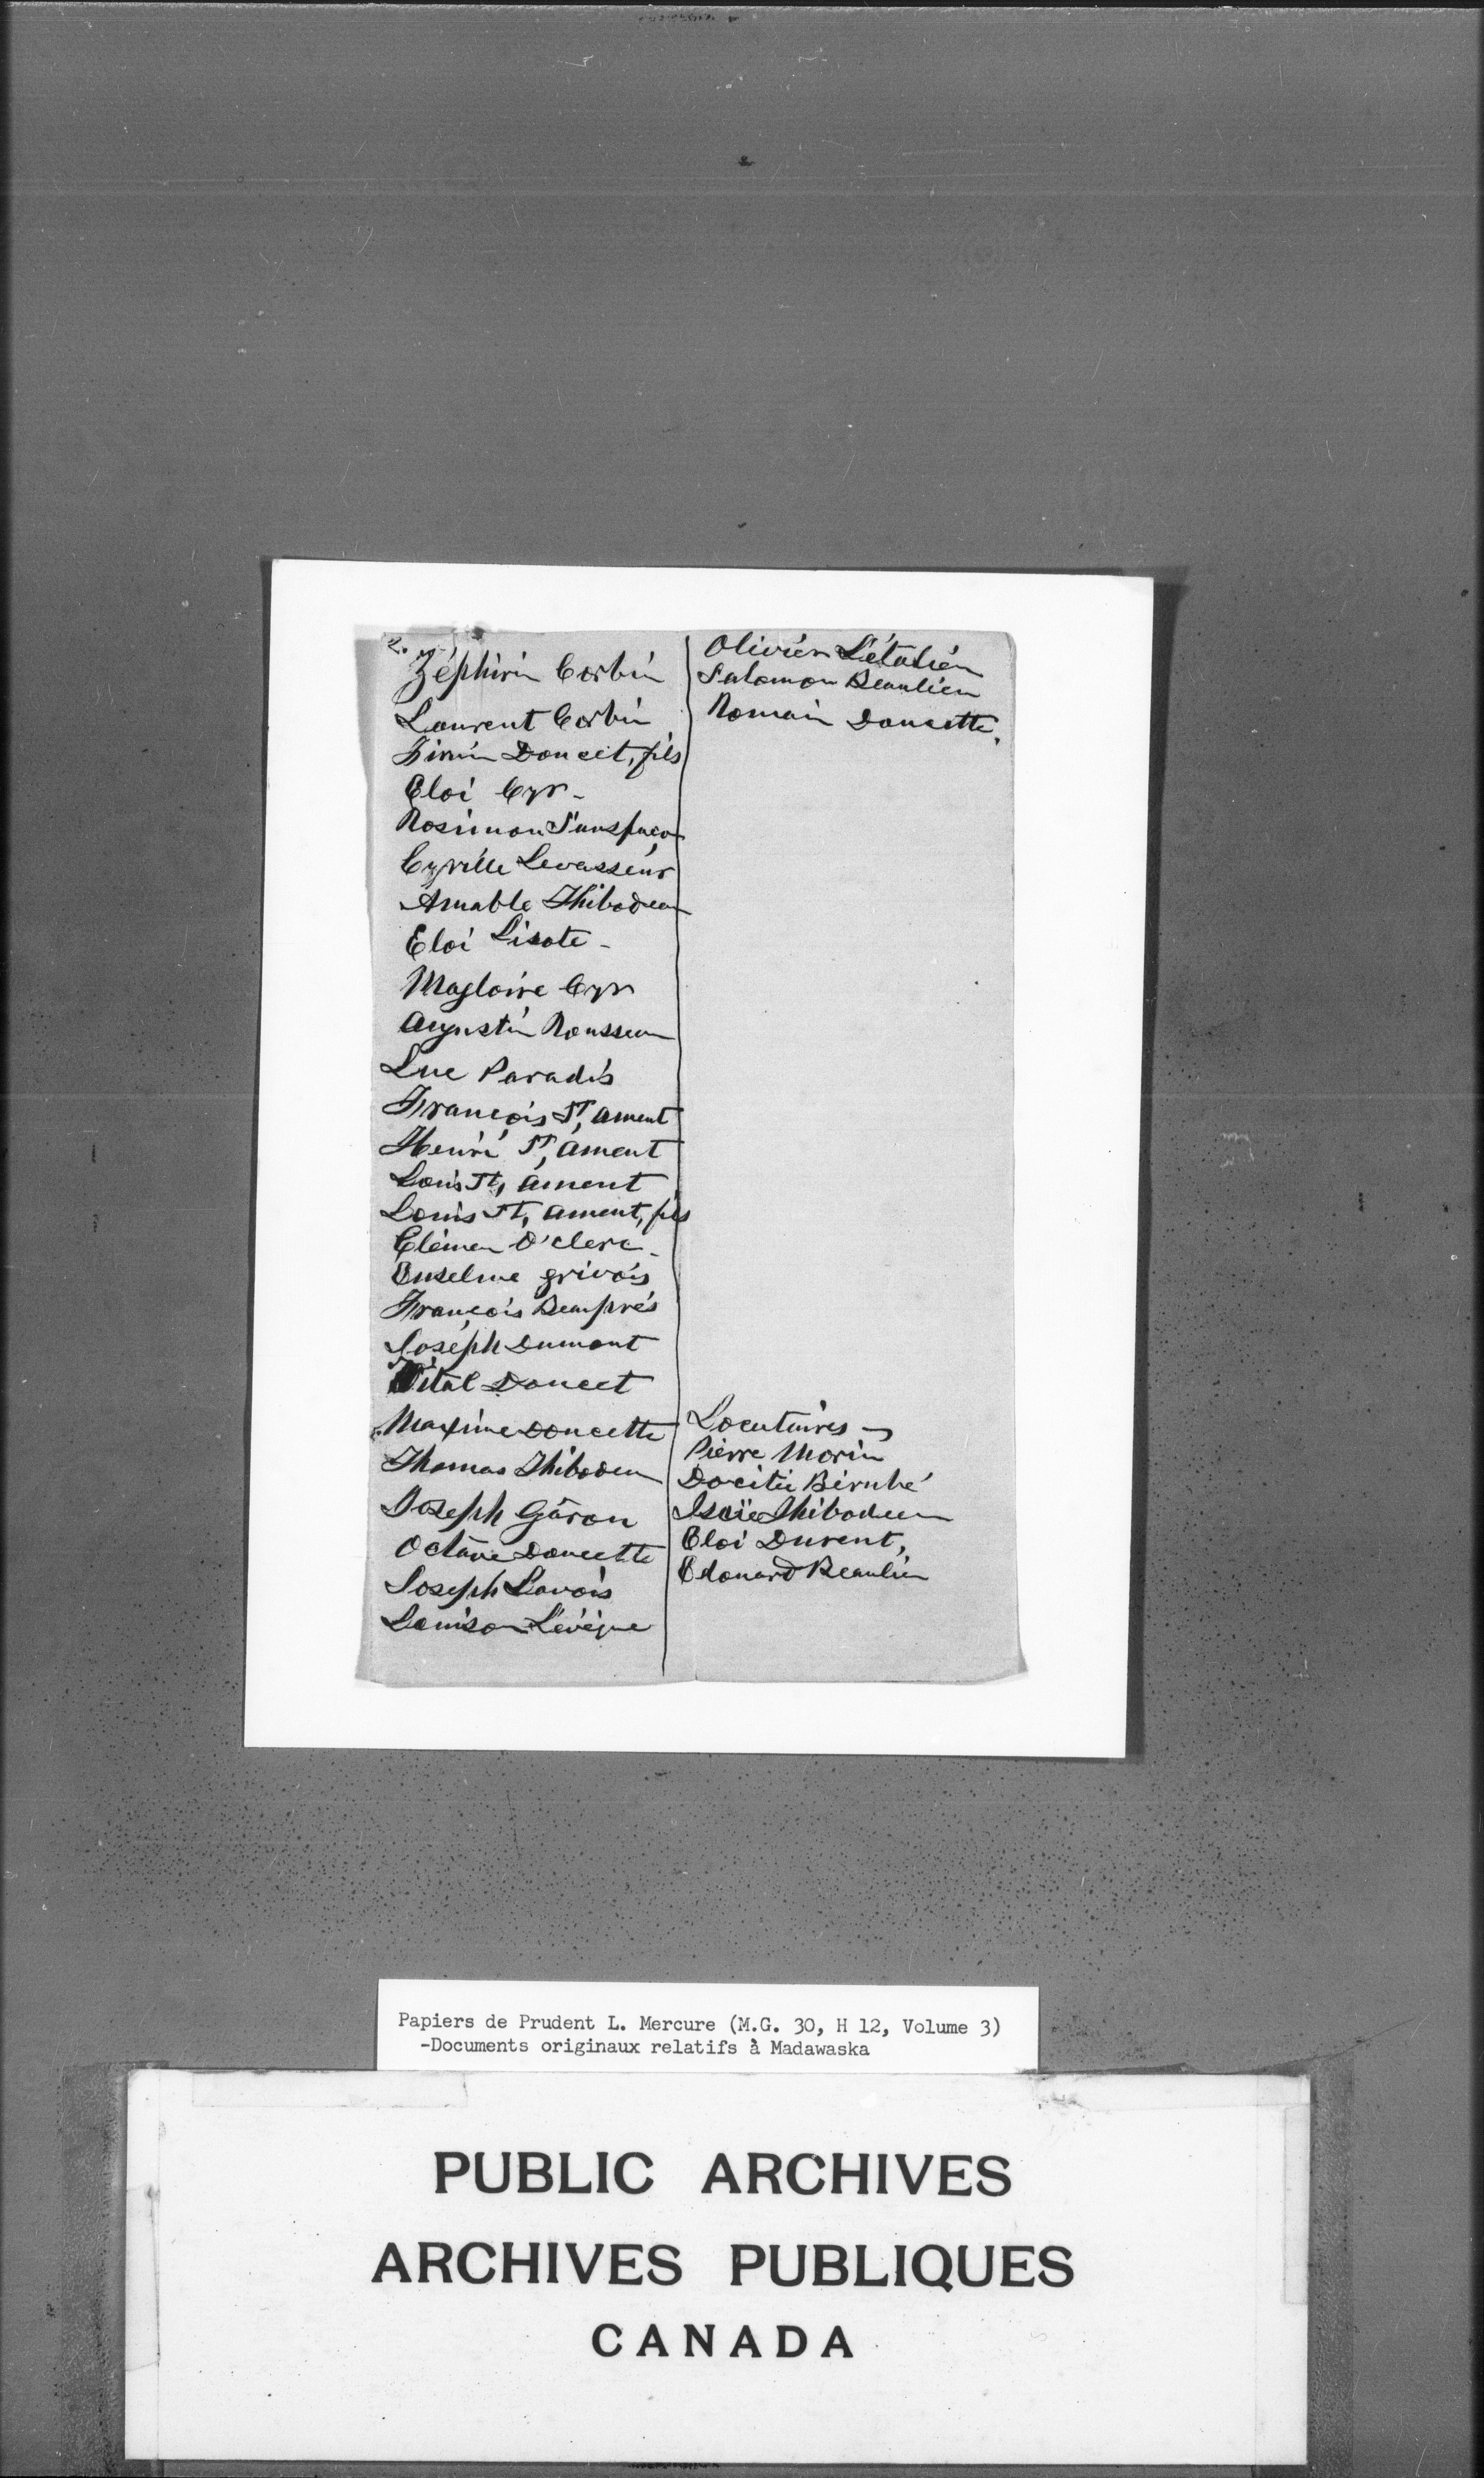 2.
Zéphirin Corbin
Laurent Corbin
Firmin Doucet, fils
Eloi Cyr -
Rosimon Sansfaçon
Cyrille Levasseur
Amable Thibodeau
Eloi Lisote -
Magloire Cyr
Augustin Rousseau
Luc Paradis
François St, Ament
Henri St, Ament
Louis St, Ament
Louis St, Ament, fils
Clémen O'clerc -
Enselme grivois
François Beauprés
Joséph Dumont
Vital Doucet
Maxime Doucette
Thomas Thibodeau
Joseph Gâron
Octave Doucette
Joseph Lavois
Louison Lévèque
Olivier Létalien
Salomon Beaulieu
Romain Doucette.
Locataires -
Pierre Morin
Docitée Bérubé
Isaïe Thibodeau
Eloi Durent,
Edouard Beaulieu
Papiers de Prudent L. Mercure (M.G. 30, H 12, Volume 3)
-Documents originaux relatifs à Madawaska
PUBLIC ARCHIVES
ARCHIVES PUBLIQUES
CANADA